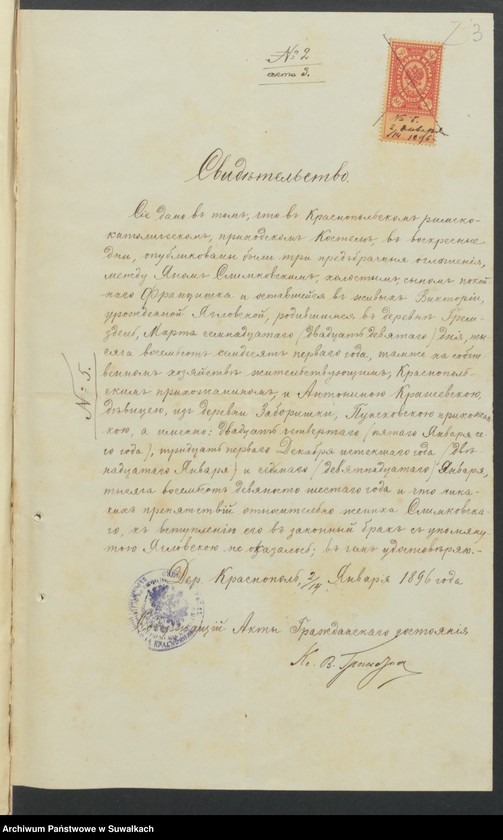 3
№ 2
акта 3.
№ 5.
2/14 января 1896.
Свидѣтельство.
Сіе дано въ томъ, что въ Краснопольскомъ римско-
католическомъ, приходскомъ Костелѣ, въ воскресные
дни, опубликованы были три предбрачныя оглашенія,
между Яномъ Слимковскимъ, холостымъ, сыномъ покой
наго Францишка и оставшейся въ живыхъ Викторіи,
урожденной Ягловской, родившимся въ деревнѣ
Марта семнадцатаго (двадцать девятаго) дня, ты-
сяча восемьсотъ семдесятъ перваго года, также на собст
венномъ хозяйствѣ жительствующимъ, Краснополь-
скимъ прихожаниномъ, и Антониною Крашевскою,
дѣвицею, изъ деревни Заборишки, Пунсковскою прихожан
кою, а именно: двадцать четвертаго (пятаго Января се-
го года), тридцать перваго Декабря истекшаго года (две
надцатаго Января) и седьмаго (девятнадцатаго) Января,
тысяча восемьсотъ девяносто шестаго года и что ника-
кихъ препятствій относительно жениха Слимковска-
го, къ вступленію его въ законный бракъ съ упомяну
тою Ягловскою не оказалось; въ чемъ удостовѣряю.-
Дер. Краснополь, 2/14 Января 1896 года
Содержащій Акты Гражданскаго состоянія
Кс. В.
№ 5.
Archiwum Państwowe w Suwałkach